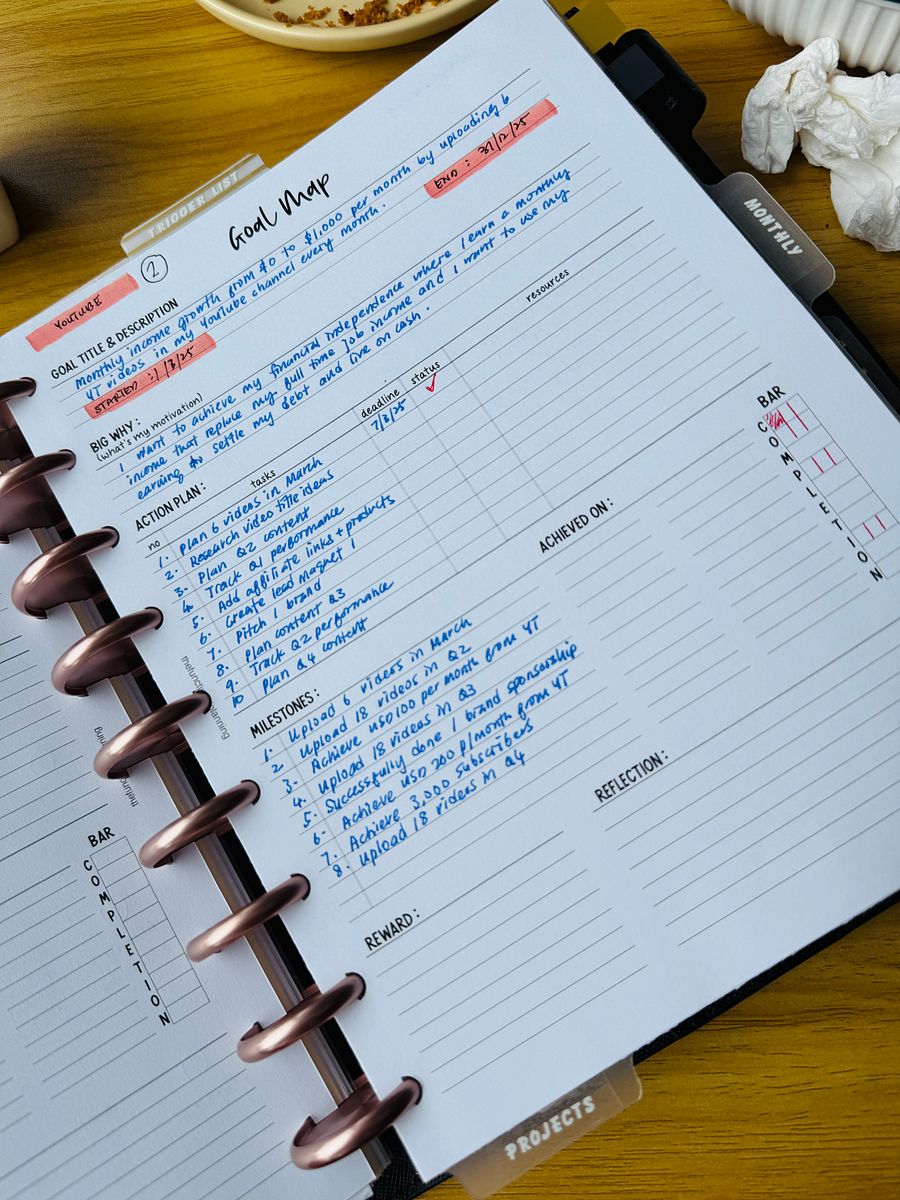 TRIGGER LIST
Goal Map
YOUTUBE
2
GOAL TITLE & DESCRIPTION
monthly income growth from $0 to $1,000 per month by uploading 6
YT videos in my Youtube channel every month.
STARTED : 1/3/25
END : 31/12/25
BIG WHY :
(what's my motivation)
I want to achieve my financial independence where I earn a monthly
income that replace my full time job income and I want to use my
earning to settle my debt and live on cash.
ACTION PLAN :
no tasks deadline status resources
1. Plan 6 videos in March 7/3/25 ✓
2. Research video title ideas
3. Plan Q2 content
4. Track Q1 performance
5. Add affiliate links + products
6. Create lead magnet 1
7. Pitch 1 brand
8. Plan content Q3
9. Track Q2 performance
10 Plan Q4 content
MILESTONES :
ACHIEVED ON :
1. Upload 6 videos in March
2. Upload 18 videos in Q2
3. Achieve USD100 per month from YT
4. Upload 18 videos in Q3
5. Successfully done 1 brand sponsorship
6. Achieve USD 200 p/month from YT
7. Achieve 3,000 subscribers
8. Upload 18 videos in Q4
REWARD :
REFLECTION :
BAR
COMPLETION
MONTHLY
PROJECTS
thefunctionalplanning
BAR
COMPLETION